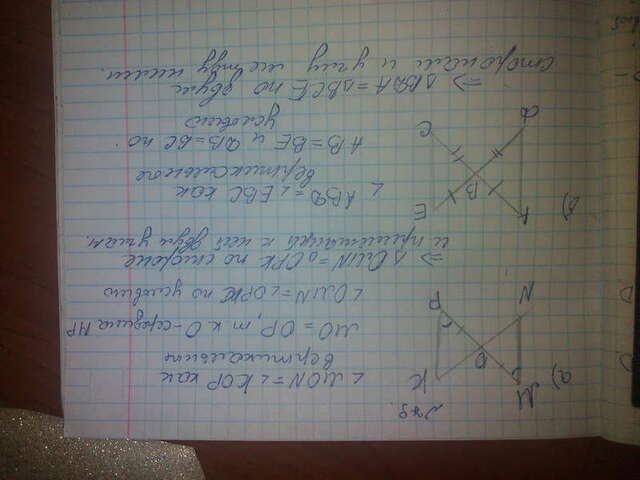 а)
M
K
O
N
P
∠MON = ∠KOP как
вертикальные
MO = OP, т к O - середина MP
∠OMN = ∠OPK по условию
⇒ △OMN = △OPK по стороне
и прилежащим к ней двум углам.
б)
A
E
B
D
C
∠ABD = ∠EBC как
вертикальные
AB = BE и DB = BC по
условию
⇒ △BDA = △BCE по двум
сторонам и углу между ними.